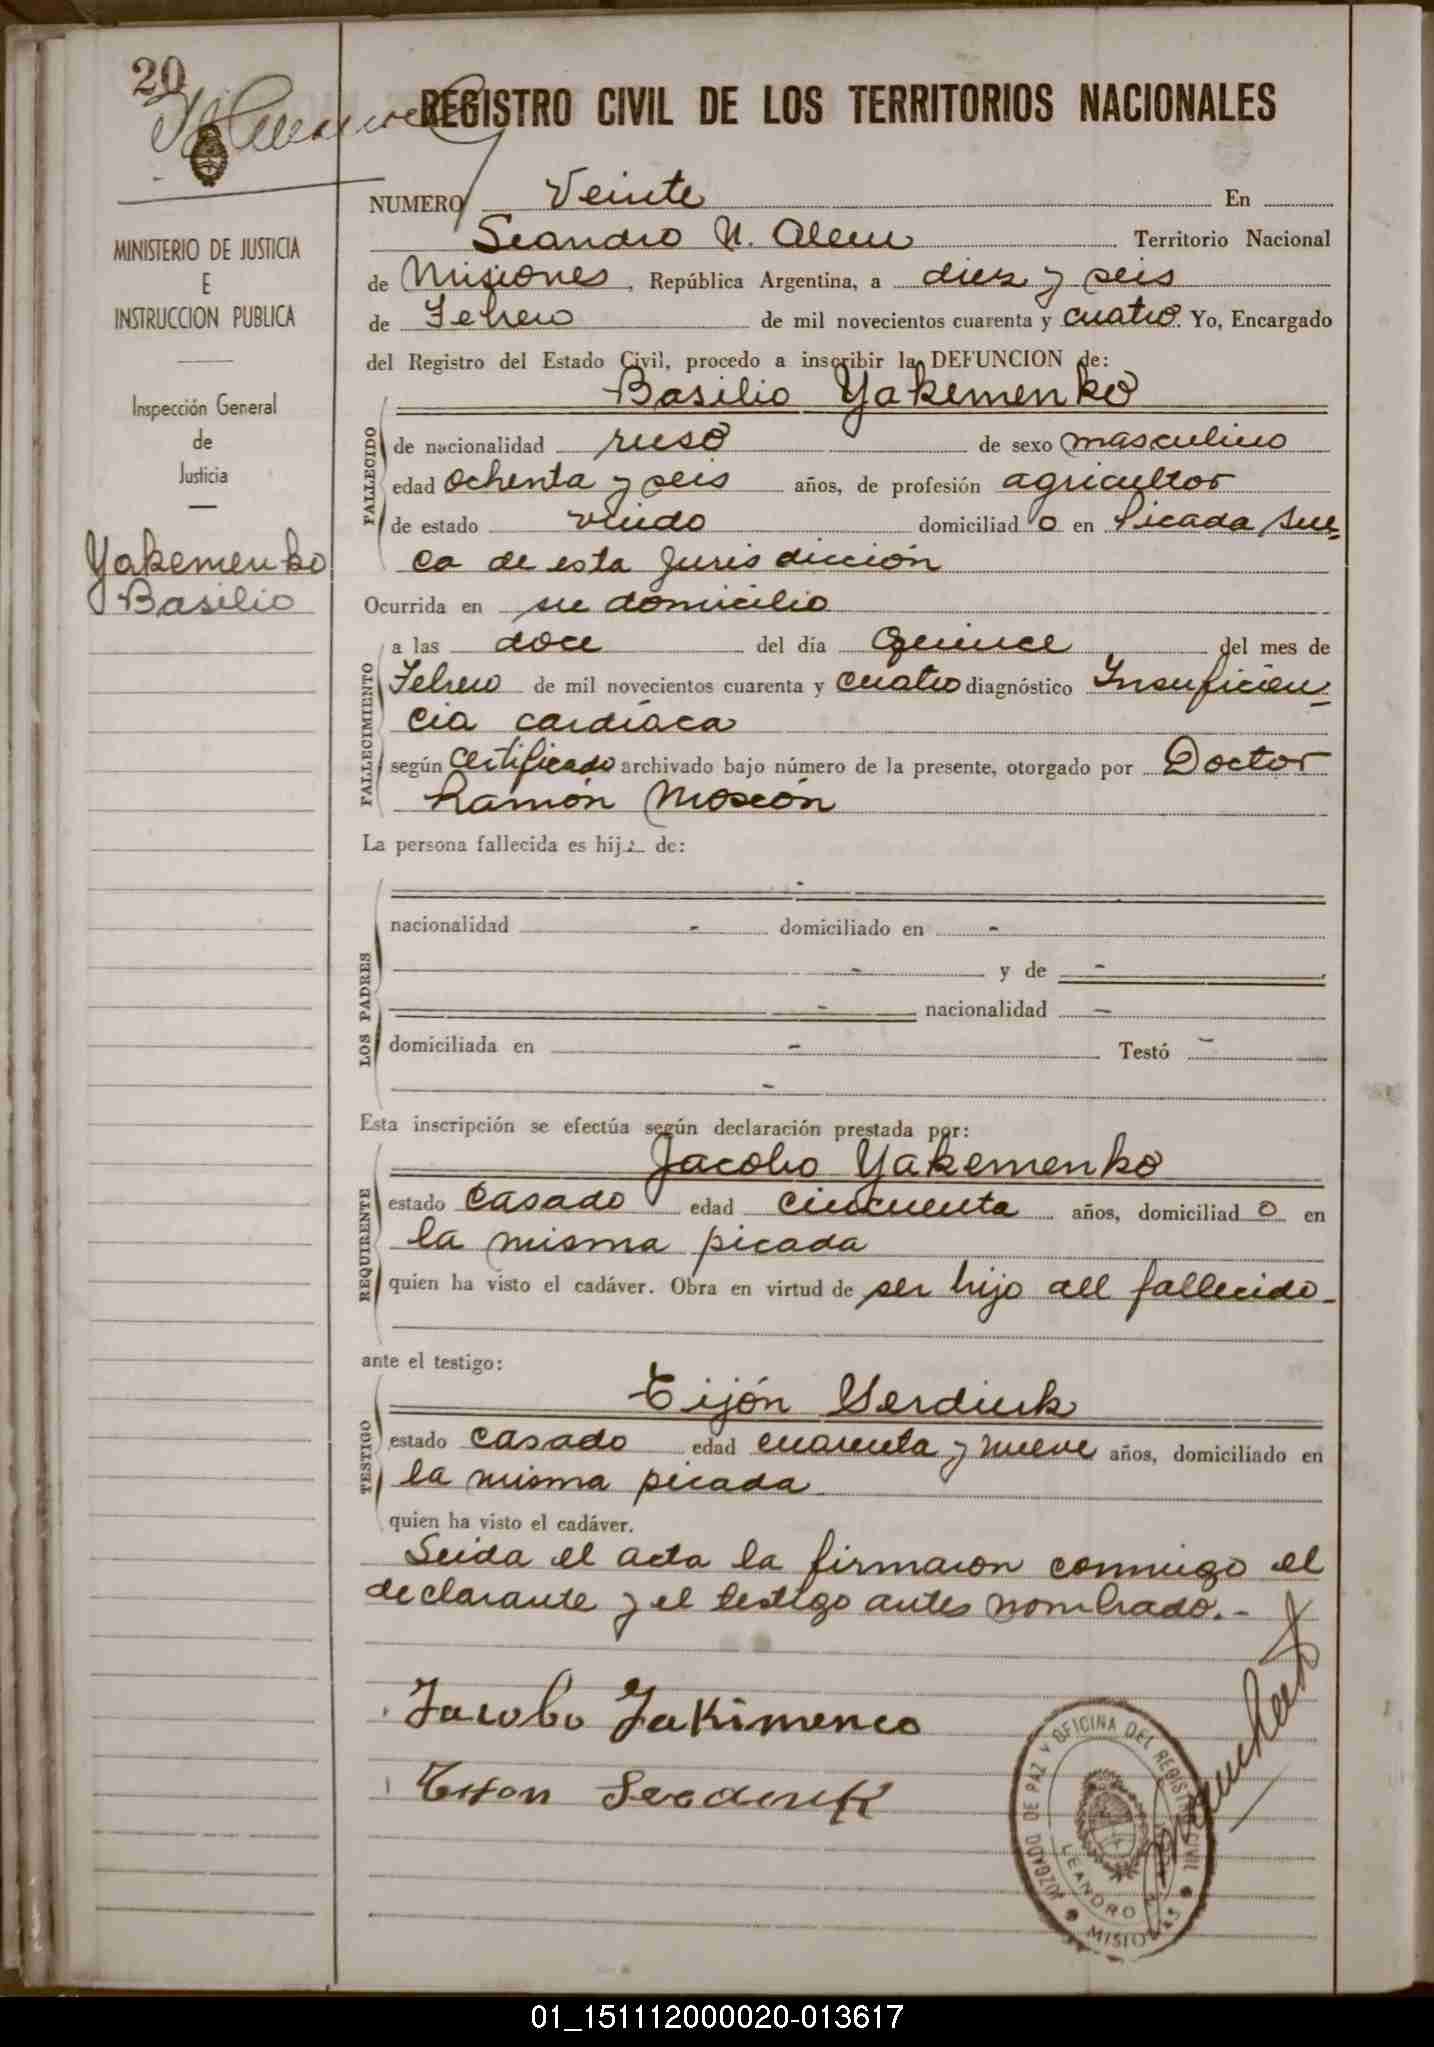 20
REGISTRO CIVIL DE LOS TERRITORIOS NACIONALES
MINISTERIO DE JUSTICIA
E
INSTRUCCION PUBLICA
Inspección General
de
Justicia
Yakemenko
Basilio
NUMERO Veinte En
Leandro N. Alem Territorio Nacional
de Misiones, República Argentina, a diez y seis
de Febrero de mil novecientos cuarenta y cuatro. Yo, Encargado
del Registro del Estado Civil, procedo a inscribir la DEFUNCION de:
Basilio Yakemenko
FALLECIDO
de nacionalidad ruso de sexo masculino
edad ochenta y seis años, de profesión agricultor
de estado viudo domiciliado en Picada Sue-
ca de esta Jurisdicción
Ocurrida en su domicilio
FALLECIMIENTO
a las doce del día quince del mes de
Febrero de mil novecientos cuarenta y cuatro diagnóstico Insuficien-
cia cardíaca
según certificado archivado bajo número de la presente, otorgado por Doctor
Ramón
La persona fallecida es hij de:
LOS PADRES
nacionalidad - domiciliado en -
- y de -
- nacionalidad -
domiciliada en - Testó -
-
Esta inscripción se efectúa según declaración prestada por:
Jacobo Yakemenko
REQUIRENTE
estado casado edad cincuenta años, domiciliado en
la misma picada
quien ha visto el cadáver. Obra en virtud de ser hijo del fallecido-
ante el testigo:
Tijón Serdiuk
TESTIGO
estado casado edad cuarenta y nueve años, domiciliado en
la misma picada
quien ha visto el cadáver.
Leida el acta la firmaron conmigo el
declarante y el testigo antes nombrado.-
Jacobo Jakimenco
Tison Serdiuk
JUZGADO DE PAZ Y OFICINA DEL REGISTRO CIVIL
LEANDRO N.
MISIONES
01_151112000020-013617